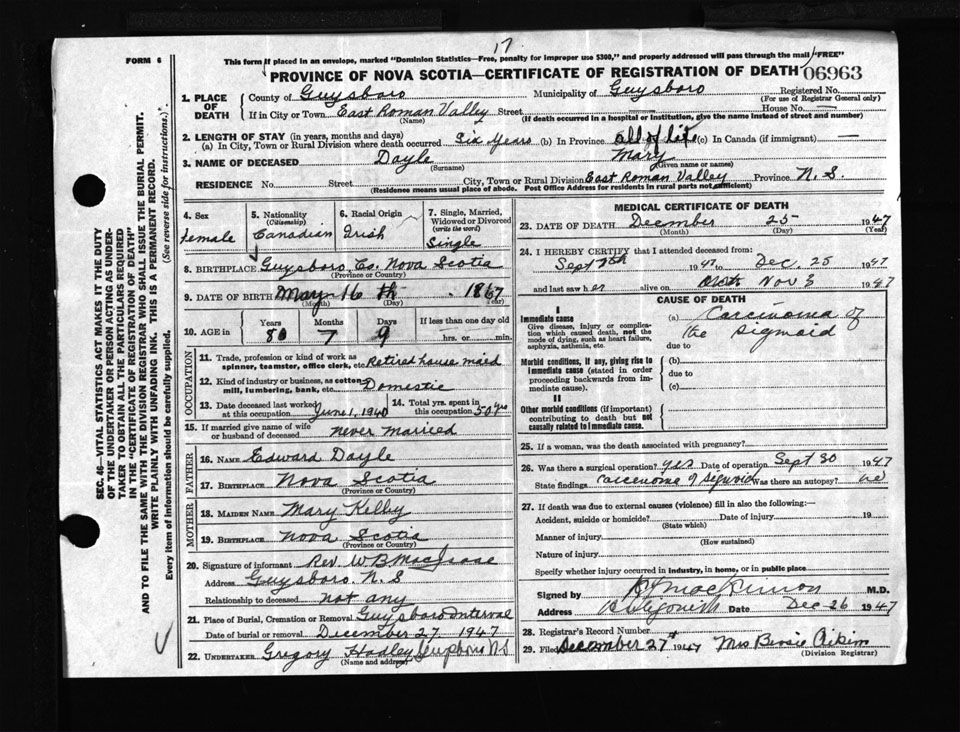 17
This form if placed in an envelope, marked "Dominion Statistics—Free, penalty for improper use $300," and properly addressed will pass through the mail "FREE"
FORM 6
PROVINCE OF NOVA SCOTIA—CERTIFICATE OF REGISTRATION OF DEATH 06963
1. PLACE OF DEATH
County of Guysboro Municipality of Guysboro Registered No.
(For use of Registrar General only)
If in City or Town East Roman Valley Street House No. —
(Name) (If death occurred in a hospital or institution, give the name instead of street and number)
2. LENGTH OF STAY (in years, months and days)
(a) In City, Town or Rural Division where death occurred Six Years (b) In Province all of life (c) In Canada (if immigrant) —
3. NAME OF DECEASED Doyle Mary
(Surname) (Given name or names)
RESIDENCE No. Street City, Town or Rural Division East Roman Valley Province N.S.
(Residence means usual place of abode. Post Office Address for residents in rural parts not sufficient)
4. Sex female
5. Nationality (Citizenship) Canadian
6. Racial Origin Irish
7. Single, Married, Widowed or Divorced (write the word) Single
8. BIRTHPLACE Guysboro Co. Nova Scotia
(Province or Country)
9. DATE OF BIRTH May 16th 1867
(Month) (Day) (Year)
10. AGE in Years Months Days If less than one day old
80 7 9 hrs. or min.
OCCUPATION
11. Trade, profession or kind of work as spinner, teamster, office clerk, etc. Retired house maid
12. Kind of industry or business, as cotton mill, lumbering, bank, etc. Domestic
13. Date deceased last worked at this occupation June 1, 1940
14. Total yrs. spent in this occupation 50 yrs
15. If married give name of wife or husband of deceased never married
FATHER
16. NAME Edward Doyle
17. BIRTHPLACE Nova Scotia
(Province or Country)
MOTHER
18. MAIDEN NAME Mary Kelly
19. BIRTHPLACE Nova Scotia
(Province or Country)
20. Signature of informant Rev. W B
Address Guysboro. N. S
Relationship to deceased not any
21. Place of Burial, Cremation or Removal Guysboro Interval
Date of burial or removal December 27 1947
22. UNDERTAKER Gregory Hadley N.S
(Name and address)
MEDICAL CERTIFICATE OF DEATH
23. DATE OF DEATH December 25 1947
(Month) (Day) (Year)
24. I HEREBY CERTIFY that I attended deceased from:
Sept 1947 to Dec. 25 1947
and last saw her alive on Nov 3 1947
CAUSE OF DEATH
I
Immediate cause
Give disease, injury or complication which caused death, not the mode of dying, such as heart failure, asphyxia, asthenia, etc.
(a) Carcinoma of the Sigmoid
due to
Morbid conditions, if any, giving rise to immediate cause (stated in order proceeding backwards from immediate cause).
(b)
due to
(c)
II
Other morbid conditions (if important) contributing to death but not causally related to immediate cause.
25. If a woman, was the death associated with pregnancy?
26. Was there a surgical operation? yes Date of operation Sept 30 1947
State findings carcinoma of sigmoid Was there an autopsy? no
27. If death was due to external causes (violence) fill in also the following:—
Accident, suicide or homicide? Date of injury 19
(State which)
Manner of injury
(How sustained)
Nature of injury
Specify whether injury occurred in industry, in home, or in public place
Signed by M.D.
Address Date Dec 26 1947
28. Registrar's Record Number
29. Filed December 27th 1947 Mrs
(Division Registrar)
SEC. 46—VITAL STATISTICS ACT MAKES IT THE DUTY
OF THE UNDERTAKER OR PERSON ACTING AS UNDER-
TAKER TO OBTAIN ALL THE PARTICULARS REQUIRED
IN THE "CERTIFICATE OF REGISTRATION OF DEATH"
AND TO FILE THE SAME WITH THE DIVISION REGISTRAR WHO SHALL ISSUE THE BURIAL PERMIT.
WRITE PLAINLY WITH UNFADING INK. THIS IS A PERMANENT RECORD.
Every item of information should be carefully supplied. (See reverse side for instructions.)